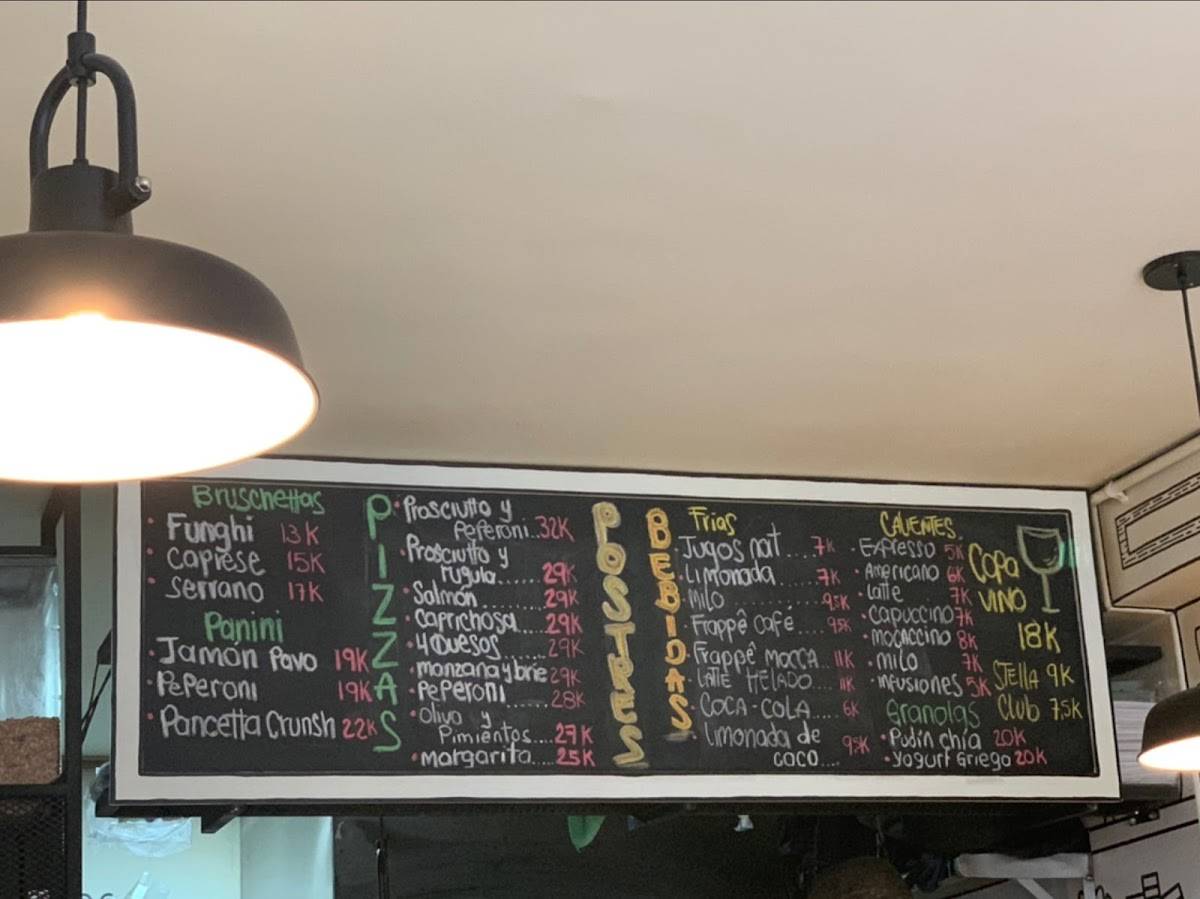 Bruschettas
• Funghi 13K
• Capiese 15K
• Serrano 17K
Panini
• Jamón Pavo 19K
• Peperoni 19K
• Pancetta Crunsh 22K
PIZZAS
• Prosciutto y
Peperoni..32K
• Prosciutto y
rugula......29K
• Salmón.........29K
• Caprichosa....29K
• 4 Quesos.......29K
• manzana y brie 29K
• Peperoni......28K
• Olivo y
Pimientos....27K
• Margarita.....25K
POSTRES
BEBIDAS
Frias
• Jugos nat....7K
• Limonada......7K
• Milo............9.5K
• Frappê Café....9.5K
• Frappê MOCCA..11K
• LATTE HELADO....11K
• COCA-COLA.....6K
• Limonada de
coco.... 9.5K
CALIENTES.
• Expresso 5K
• Americano 6K
• Latte 7K
• Capuccino 7K
• mocaccino 8K
• milo 7K
• infusiones 5K
Granolas
• Pudín chía 20K
• Yogurt Griego 20K
Copa
VINO
18K
STELLA 9K
Club 7,5K